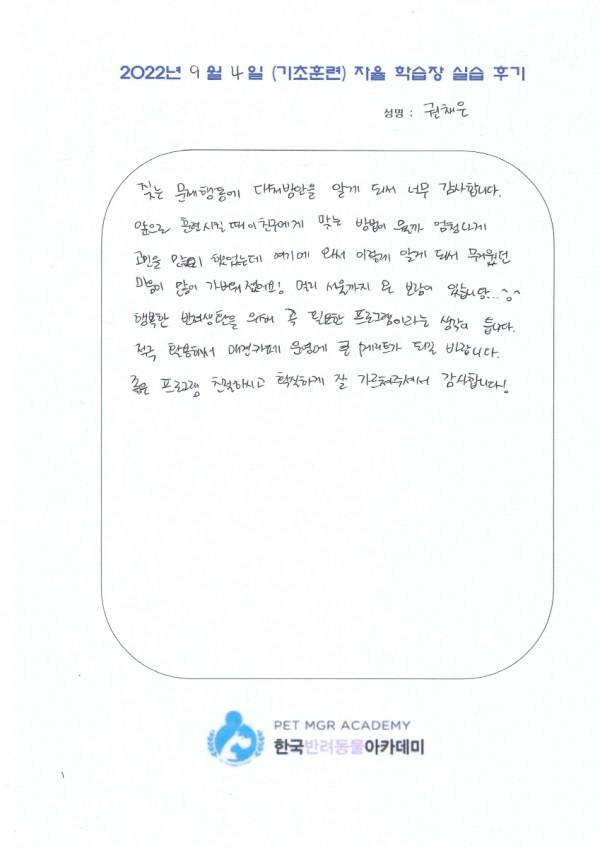 2022년 9월 4일 (기초훈련) 자율 학습장 실습 후기
성명 : 권채운
짖는 문제행동에 대처방안을 알게 되서 너무 감사합니다.
앞으로 훈련시킬 때 이 친구에게 맞는 방법이 뭘까 엄청나게
고민을 많이 했었는데 여기에 와서 이렇게 알게 되서 무거웠던
마음이 많이 가벼워졌어요! 멀리 서울까지 온 보람이 있습니당...^^
행복한 반려생활을 위해 꼭 필요한 프로그램이라는 생각이 듭니다.
적극 활용해서 애견카페 운영에 큰 메리트가 되길 바랍니다.
좋은 프로그램 친절하시고 확실하게 잘 가르쳐주셔서 감사합니다!
PET MGR ACADEMY
한국반려동물아카데미